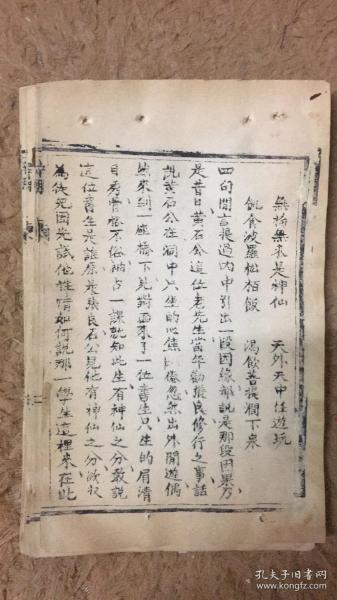 無拘無束是神仙　天外天中任遊玩
飢食波羅松栢飯　渴飲菩提澗下泉
四句閒言提過內中引出一段因緣却說是那段因果乃
是昔日黃石公這位老先生當年勸張良修行之事話
說黃石公在洞中只坐的心焦悶倦忽然出外閒遊偶
然來到一座橋下見對面來了一位書生只生的眉清
目秀骨格不俗袖占一課就知此生有神仙之分敢說
這位書生是誰原是張良石公見他有神仙之分欲收
為徒兒因先試他性情如何說那一學生這裡來在此
孔夫子旧书网
www.kongfz.com